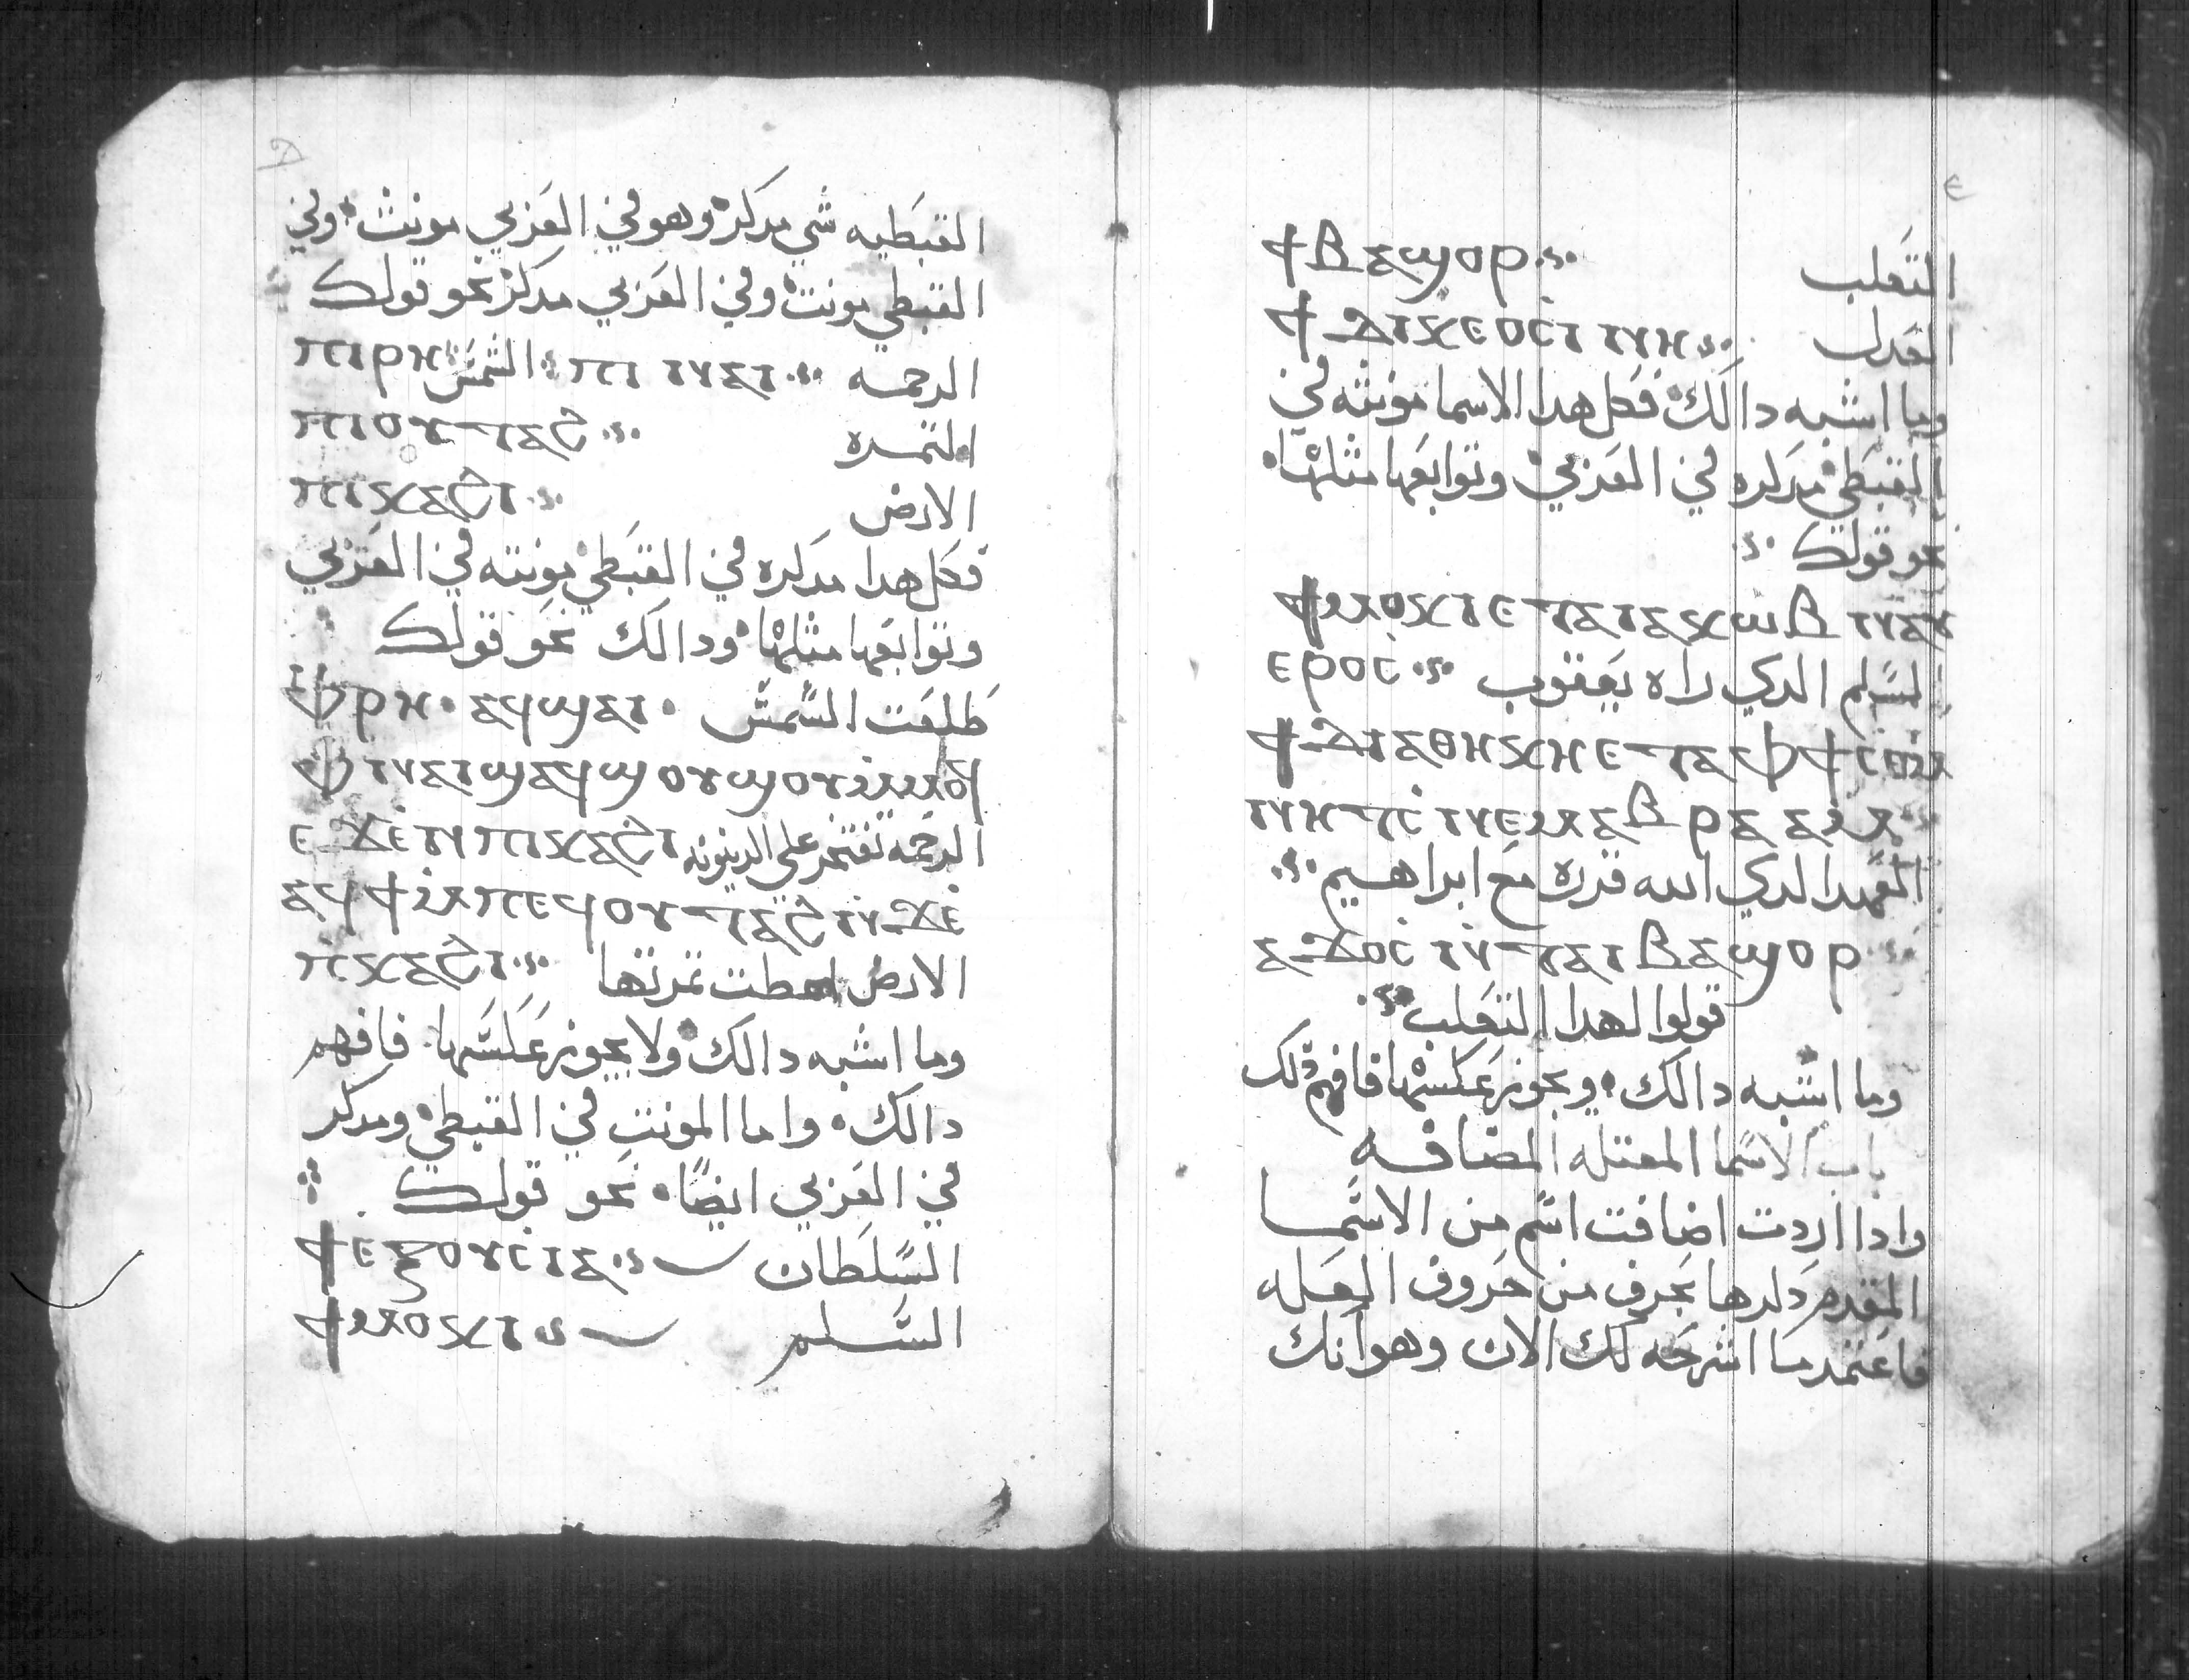 ⲇ
القبطيه شي مدكر وهو في العربي مونث وفي
القبطي مونت وفي العربي مدكر نحو قولك
الرحمه ⲡⲓ ⲛⲁⲓ الشمس ⲡⲓⲣⲏ
التمره ⲡⲓⲟⲩⲧⲁϩ
الارض ⲡⲓⲕⲁϩⲓ
فكل هدا مدكره في القبطي مونته في العربي
وتوابعها مثلها ودالك نحو قولك
طلعت الشمس ⲫⲣⲏ ⲁϥϣⲁⲓ
ⲫⲛⲁⲓ ϣⲁϥϣⲟⲩϣⲟⲩ ⲙⲙⲟϥ
ⲉϫⲉⲛ ⲡⲓϩⲁⲡ الرحمه تفتخر على الدينونه
ⲁϥϯ ⲙⲡⲉϥⲟⲩⲧⲁϩ ⲛϫⲉ
ⲡⲕⲁϩⲓ الارض اعطت تمرتها
وما اشبه دالك ولا يجوز عكسها فافهم
دالك واما المونت في القبطي ومدكر
في العربي ايضا نحو قولك
السلطان ϯⲉⲝⲟⲩⲥⲓⲁ
السلم ϯⲙⲟⲕⲓ
ⲉ
التعلب ϯⲃⲁϣⲟⲣ
العدل ϯⲇⲓⲕⲉⲟⲥⲓⲛⲏ
وما اشبه دالك فكل هدا الاسما مونثه في
القبطي مدكره في العربي وتوابعها مثلها
نحو قولك
ϯⲙⲟⲕⲓ ⲉⲧⲁ ⲓⲁⲕⲱⲃ ⲛⲁⲩ
ⲉⲣⲟⲥ السلم الدي راه يعقوب
ϯⲇⲓⲁⲑⲏⲕⲏ ⲉⲧⲁ ⲫϯ ⲥⲉⲙ
ⲛⲏⲧⲥ ⲛⲉⲙ ⲁⲃⲣⲁⲁⲙ
العهد الدي الله قرره مع ابراهيم
ⲁϫⲟⲥ ⲛⲧⲁⲓⲃⲁϣⲟⲣ
قولوا لهدا التعلب
وما اشبه دالك ويجوز عكسها فافهم دلك
باب الاسما المعتله المضافه
وادا اردت اضافت اسم من الاسما
المقدم دكرها بحرف من حروف العله
فاعتمد ما اشرحه لك الان وهو انك